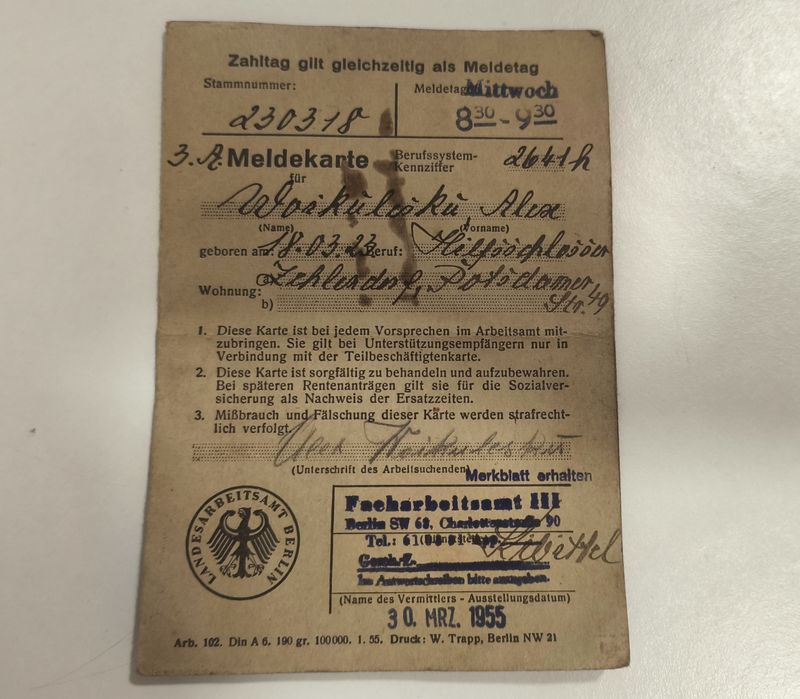 Zahltag gilt gleichzeitig als Meldetag
Stammnummer:
230318
Meldetag Mittwoch
8 30 - 9 30
3. A. Meldekarte
für
Berufssystem-
Kennziffer
2641 h
Woikulesku Alex
(Name) (Vorname)
geboren am: 18.03.23 Beruf: Hilfsschlosser
Wohnung: a) Zehlendorf, Potsdamer
b) Str. 49
1. Diese Karte ist bei jedem Vorsprechen im Arbeitsamt mit-
zubringen. Sie gilt bei Unterstützungsempfängern nur in
Verbindung mit der Teilbeschäftigtenkarte.
2. Diese Karte ist sorgfältig zu behandeln und aufzubewahren.
Bei späteren Rentenanträgen gilt sie für die Sozialver-
sicherung als Nachweis der Ersatzzeiten.
3. Mißbrauch und Fälschung dieser Karte werden strafrecht-
lich verfolgt.
Alex Woikulesku
(Unterschrift des Arbeitsuchenden)
Merkblatt erhalten
LANDESARBEITSAMT BERLIN
Facharbeitsamt III
Berlin SW 68, Charlottenstraße 90
Tel.: 61
Gesch.Z.
Im Antwortschreiben bitte anzugeben.
(Name des Vermittlers - Ausstellungsdatum)
30. MRZ. 1955
Arb. 102. Din A 6. 190 gr. 100000. 1. 55. Druck: W. Trapp, Berlin NW 21